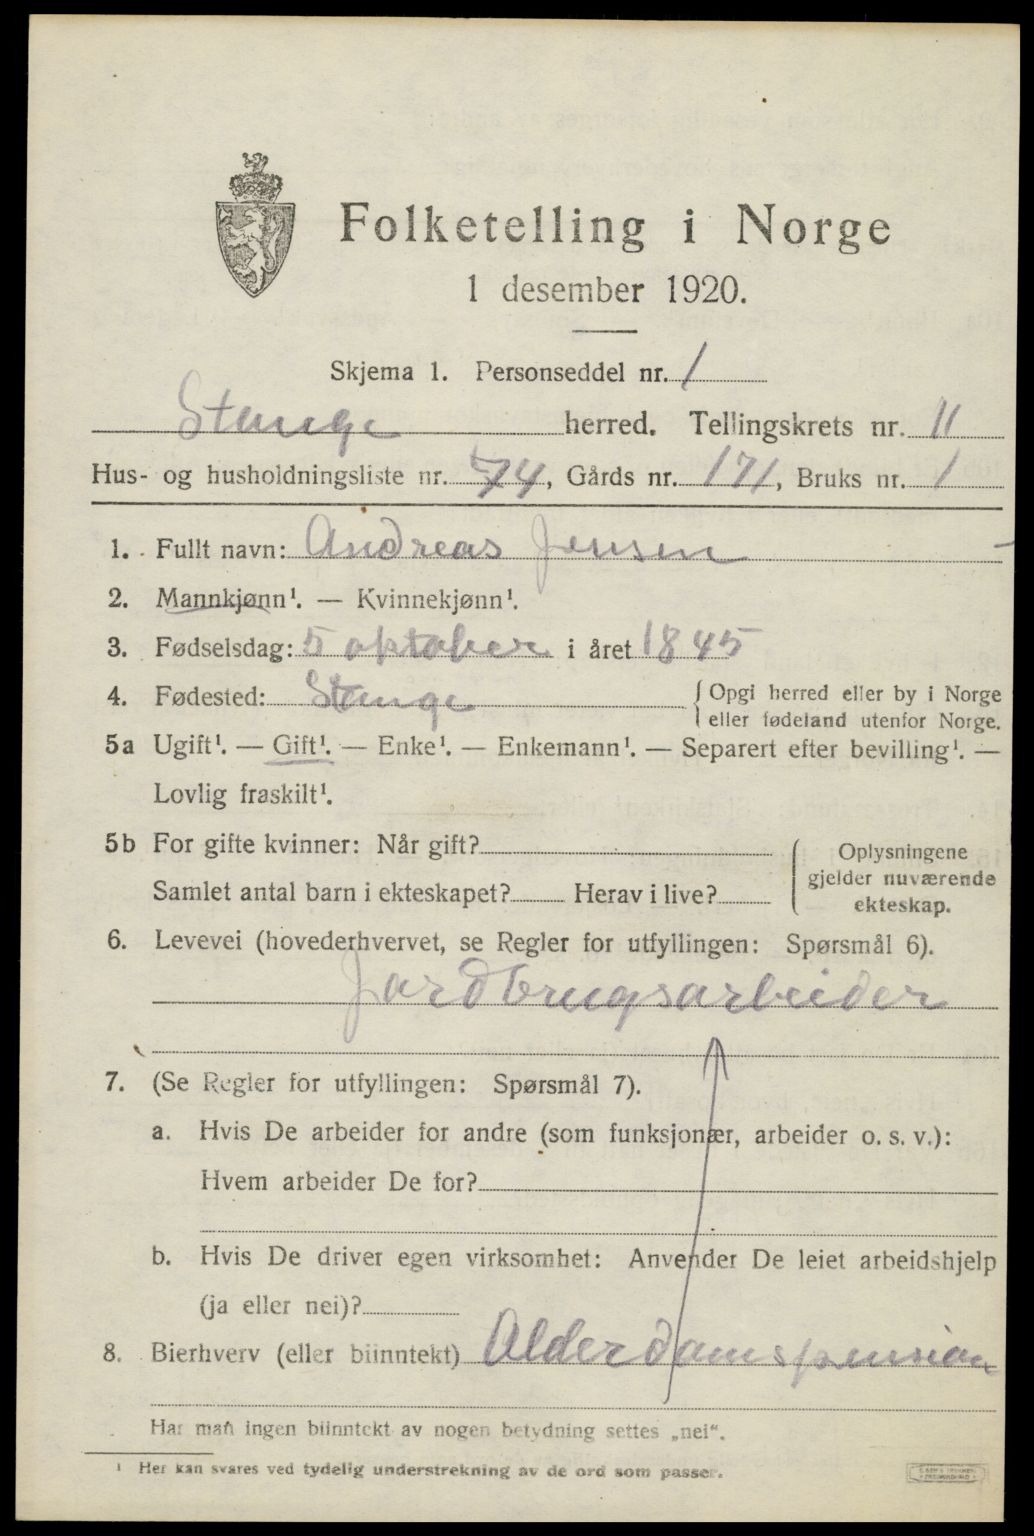 Folketelling i Norge
1 desember 1920.
Skjema 1. Personseddel nr. 1
Stange herred. Tellingskrets nr. 11
Hus- og husholdningsliste nr. 74, Gårds nr. 171, Bruks nr. 1
1. Fullt navn: Andreas Jensen
2. Mannkjønn¹. — Kvinnekjønn¹.
3. Fødselsdag: 5 oktober i året 1845
4. Fødested: Stange { Opgi herred eller by i Norge
eller fødeland utenfor Norge.
5a Ugift¹. — Gift¹. — Enke¹. — Enkemann¹. — Separert efter bevilling¹. —
Lovlig fraskilt¹.
5b For gifte kvinner: Når gift?
Samlet antal barn i ekteskapet? Herav i live?
{ Oplysningene
gjelder nuværende
ekteskap.
6. Levevei (hovederhvervet, se Regler for utfyllingen: Spørsmål 6).
Jordbrugsarbeider
7. (Se Regler for utfyllingen: Spørsmål 7).
a. Hvis De arbeider for andre (som funksjonær, arbeider o. s. v.):
Hvem arbeider De for?
b. Hvis De driver egen virksomhet: Anvender De leiet arbeidshjelp
(ja eller nei)?
8. Bierhverv (eller biinntekt) Alderdomspension
Har man ingen biinntekt av nogen betydning settes „nei“.
¹ Her kan svares ved tydelig understrekning av de ord som passer.